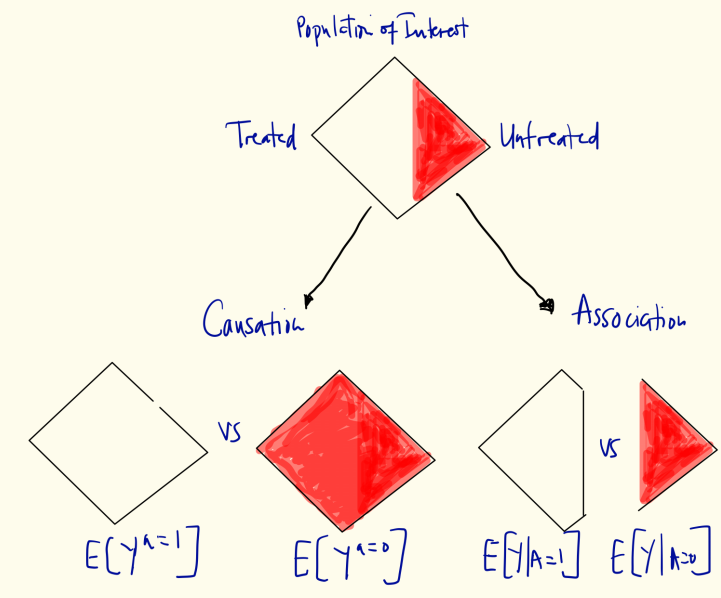 Population of Interest
Treated
Untreated
Causation
Association
VS
VS
E[Y^{a=1}]
E[Y^{a=0}]
E[Y|A=1]
E[Y|A=0]